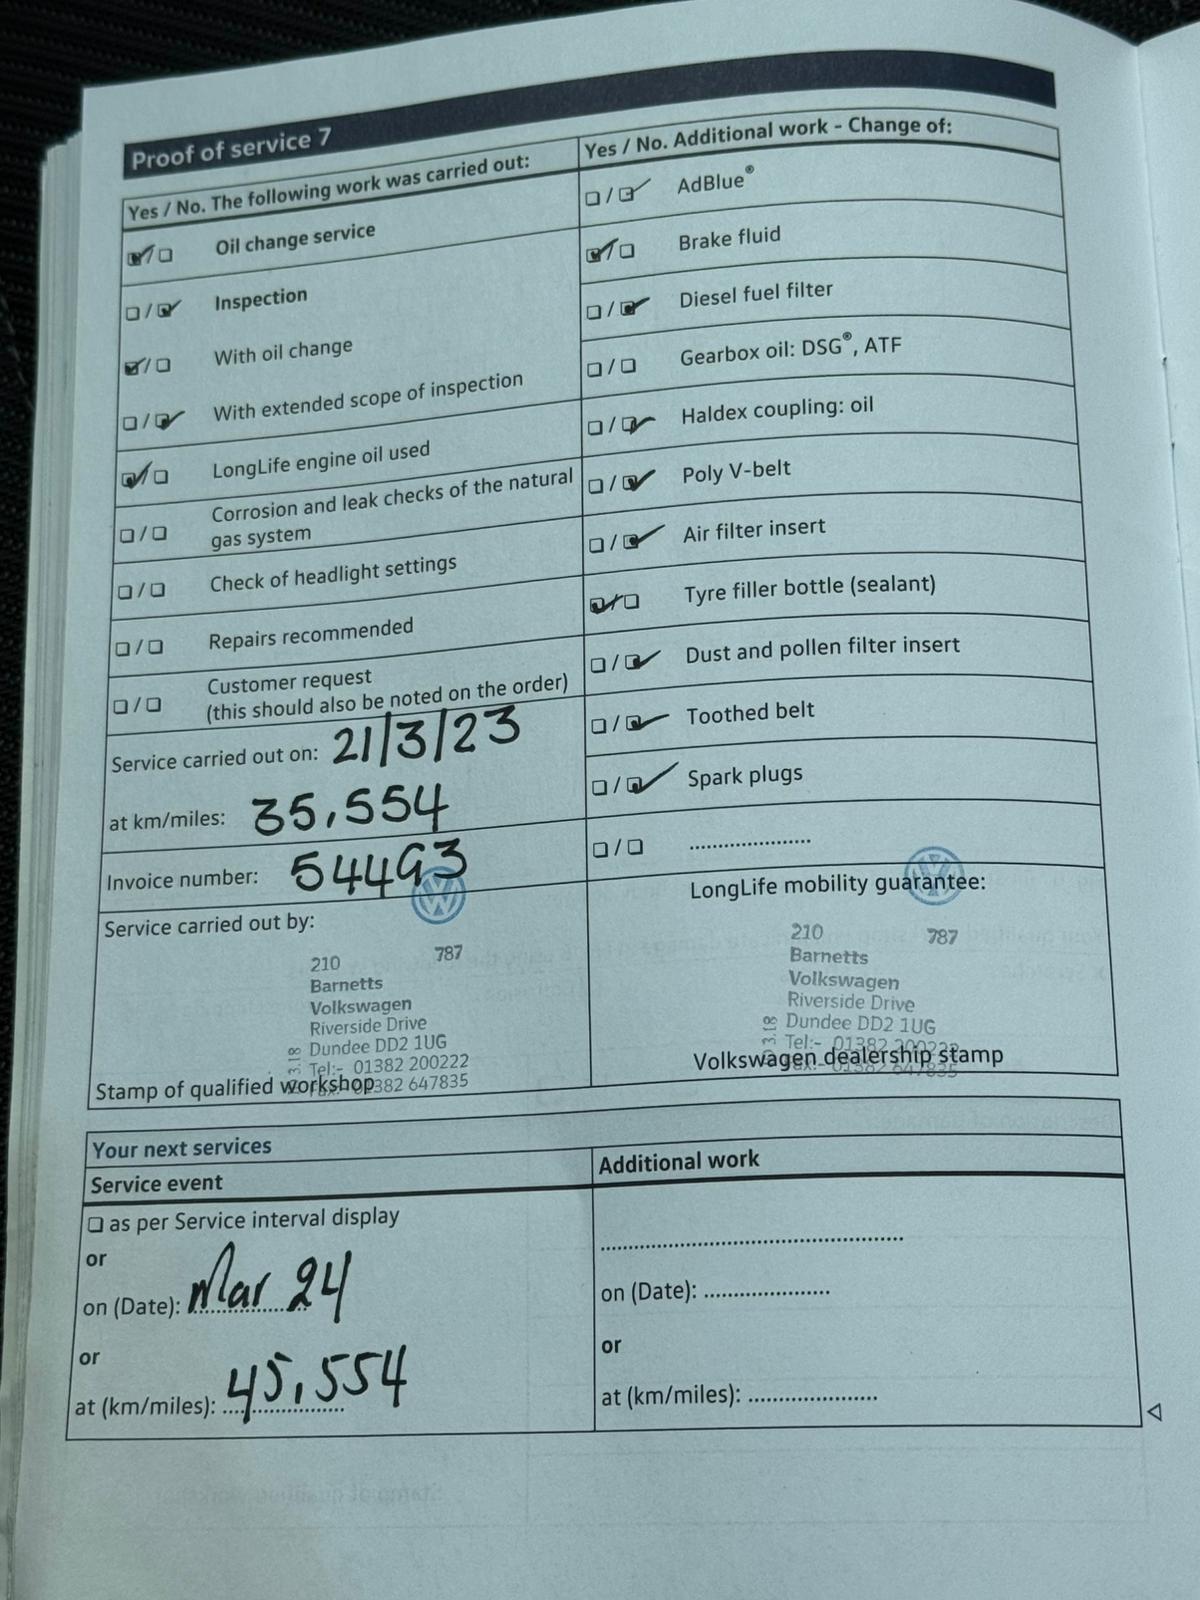 Proof of service 7
Yes / No. The following work was carried out:
Oil change service
Inspection
With oil change
With extended scope of inspection
LongLife engine oil used
Corrosion and leak checks of the natural
gas system
Check of headlight settings
Repairs recommended
Customer request
(this should also be noted on the order)
Service carried out on: 21/3/23
at km/miles: 35,554
Invoice number: 54493
Service carried out by:
210 787
Barnetts
Volkswagen
Riverside Drive
Dundee DD2 1UG
Tel:- 01382 200222
Fax:- 01382 647835
Stamp of qualified workshop
Yes / No. Additional work - Change of:
AdBlue®
Brake fluid
Diesel fuel filter
Gearbox oil: DSG®, ATF
Haldex coupling: oil
Poly V-belt
Air filter insert
Tyre filler bottle (sealant)
Dust and pollen filter insert
Toothed belt
Spark plugs
....................
LongLife mobility guarantee:
210 787
Barnetts
Volkswagen
Riverside Drive
Dundee DD2 1UG
Tel:- 01382 200222
Fax:- 01382 647835
Volkswagen dealership stamp
Your next services
Service event
as per Service interval display
or
on (Date): Mar 24
or
at (km/miles): 45,554
Additional work
on (Date): ....................
or
at (km/miles): ....................